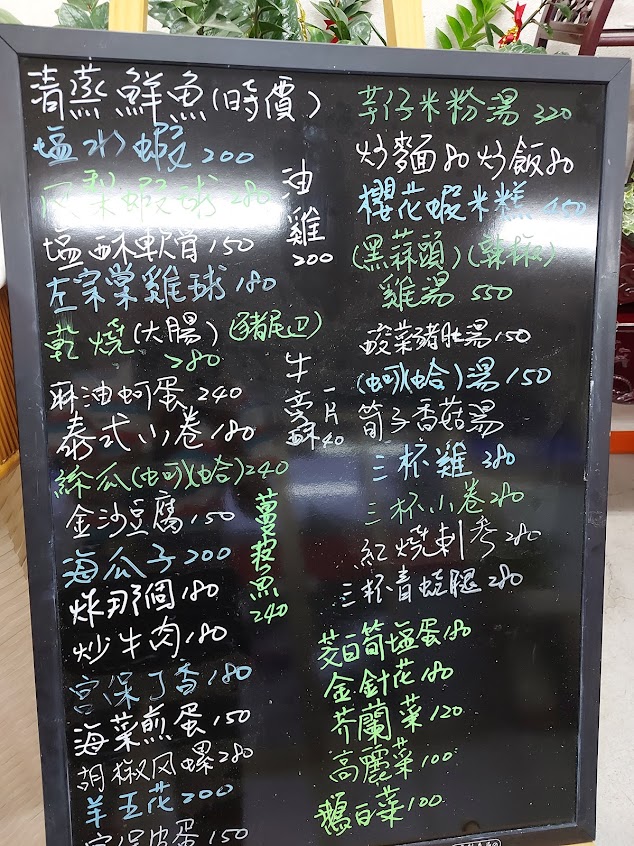 清蒸鮮魚(時價)
塩水蝦200
鳳梨蝦球280
塩酥軟骨150
左宗棠雞球180
乾燒(大腸)(豬尾边)
280
麻油蚵蛋240
泰式小卷180
絲瓜(蚵)(蛤)240
金沙豆腐150
海瓜子200
炸那個180
炒牛肉180
宮保丁香180
海菜煎蛋150
胡椒风螺280
羊五花200
宮保皮蛋150
油雞200
牛蒡酥一片40
薑絲魚240
芋仔米粉湯320
炒麵80炒飯80
櫻花蝦米糕450
(黑蒜頭)(辣椒)
雞湯550
酸菜豬肚湯150
(蚵)(蛤)湯150
筍子香菇湯
三杯雞380
三杯小卷280
紅燒刺参280
三杯青蛙腿280
茭白筍塩蛋180
金針花180
芥蘭菜120
高麗菜100
鵝白菜100